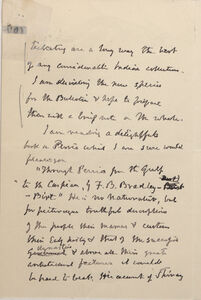 Tibetan) are a long way the best
of any considerable Indian collection.
I am describing the new species
for the Bulletin & hope to preface
them with a brief note on the whole.
I am reading a delightful
book on Persia which I am sure would
"Through Persia from the Gulf
to the Caspian, by F. B. Bradley-
Birt" He is no Naturalist, but
for picturesque truthful description
of the people their manners & customs
their early history & that of the
dynasties & above all their great
architectural features it would
be hard to beat. His account of Shiraz